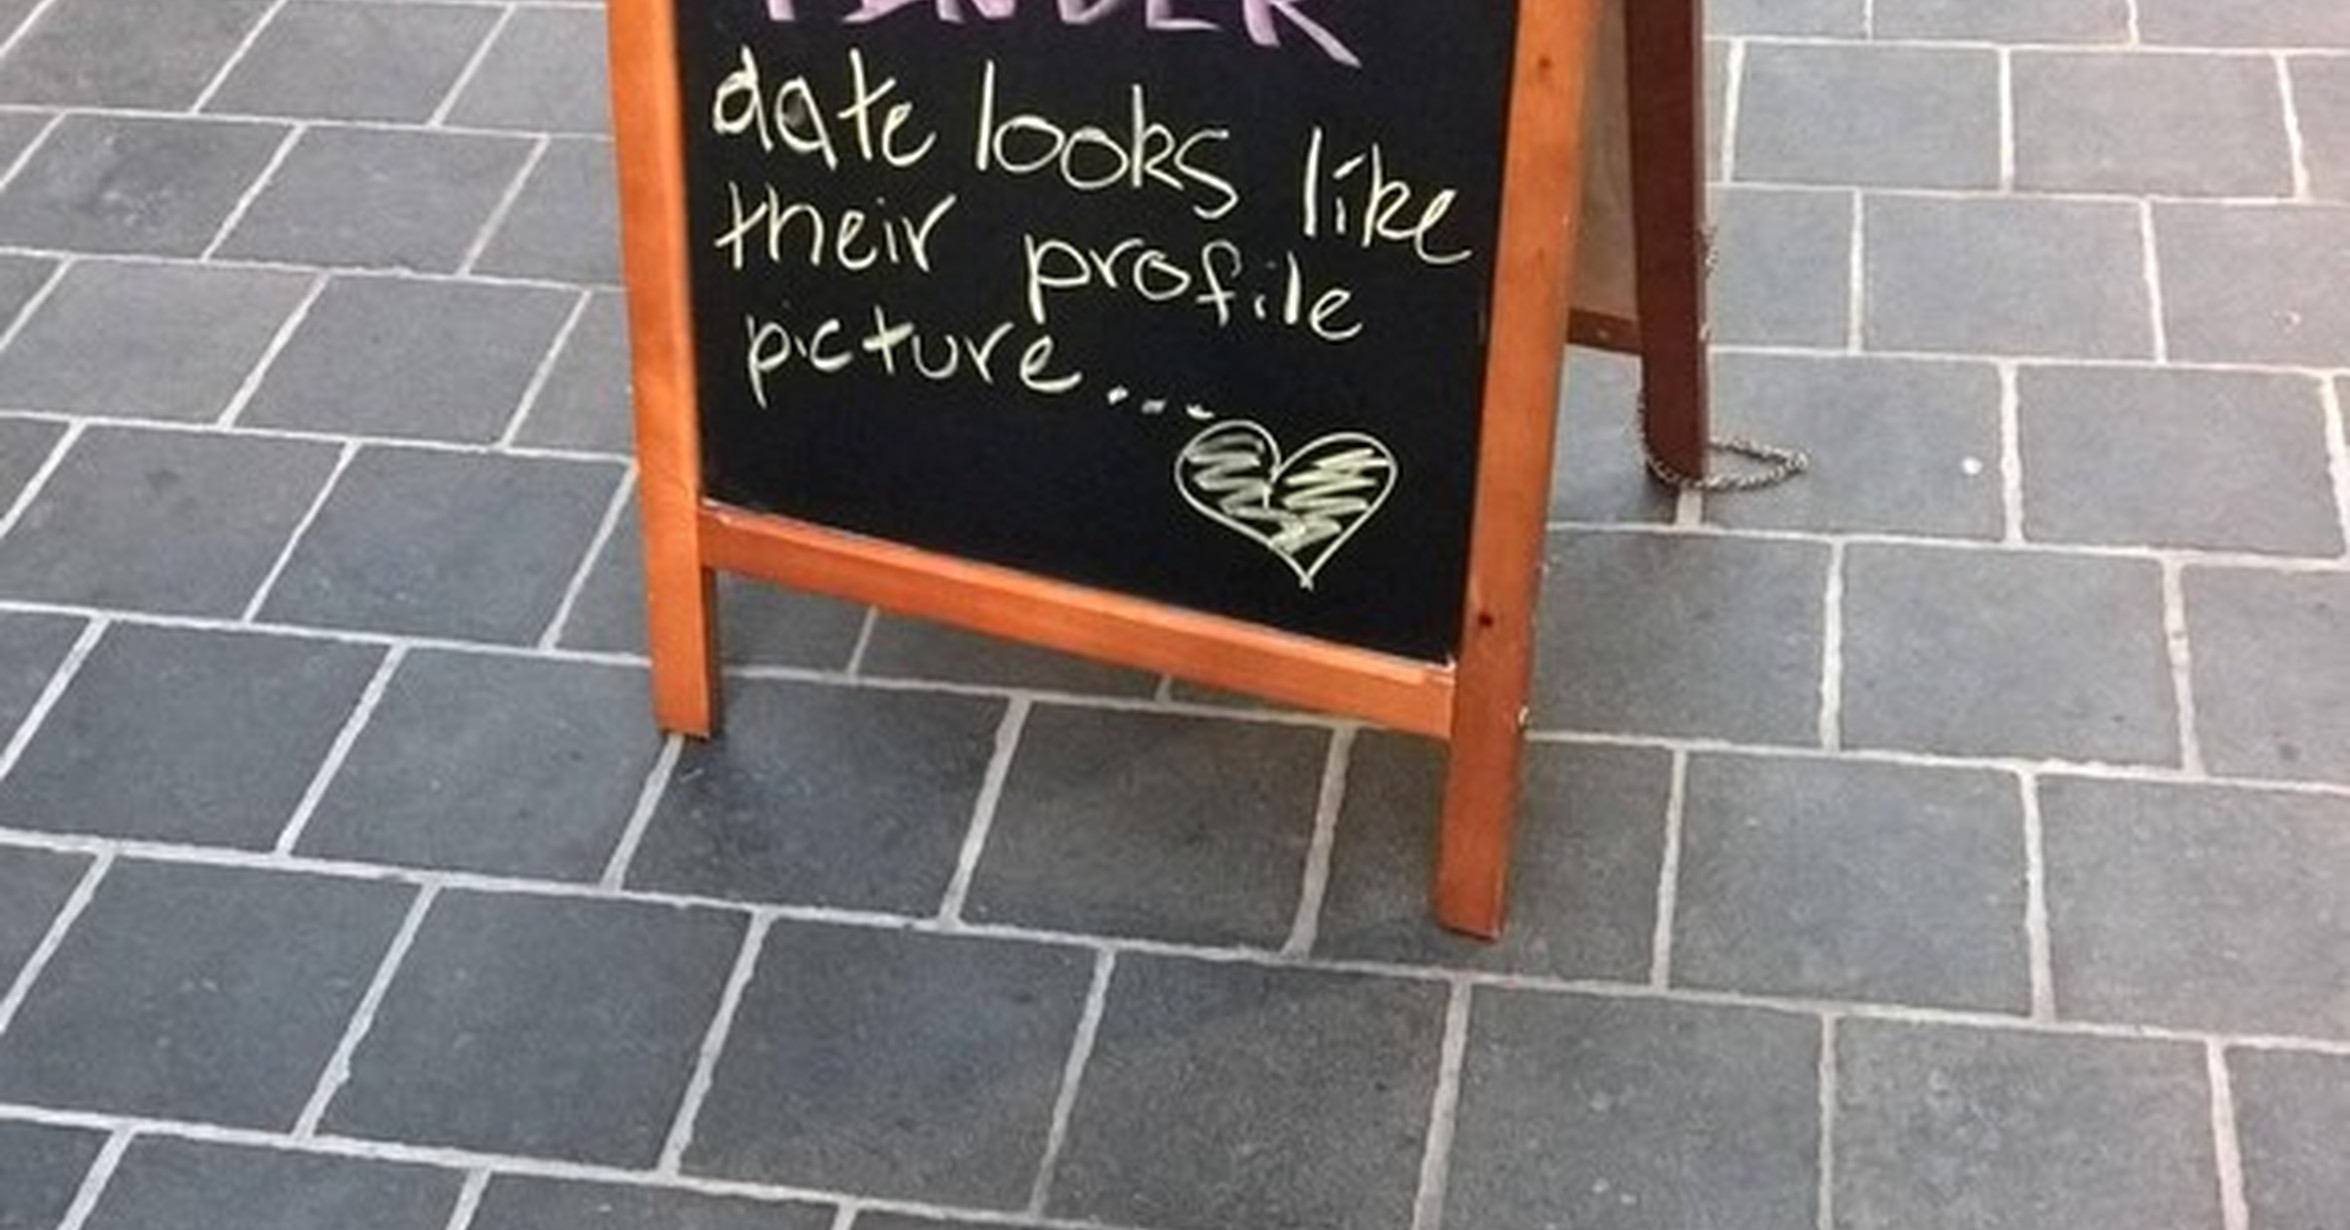 TINDER
date looks like
their profile
picture...